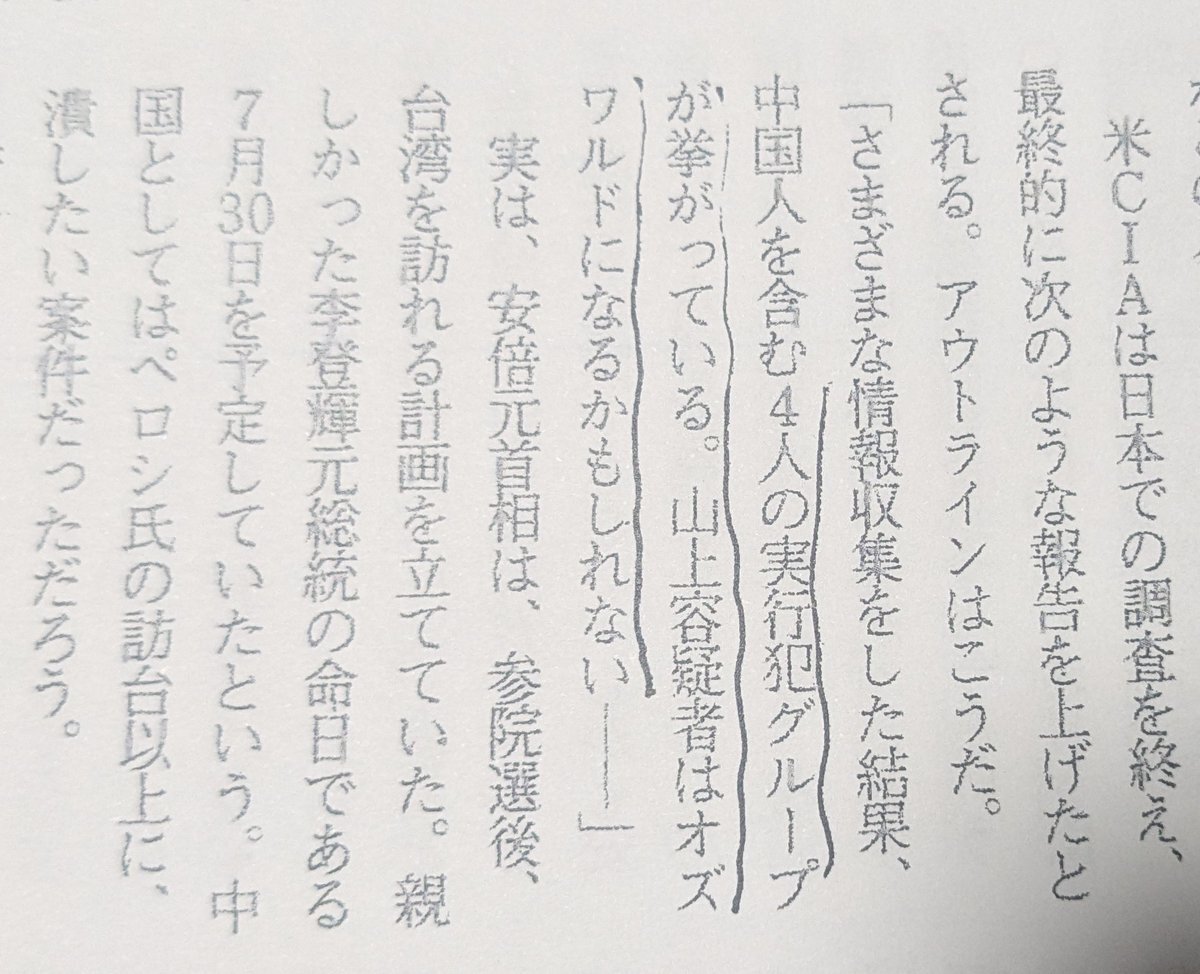 米CIAは日本での調査を終え、
最終的に次のような報告を上げたと
される。アウトラインはこうだ。
「さまざまな情報収集をした結果、
中国人を含む4人の実行犯グループ
が挙がっている。山上容疑者はオズ
ワルドになるかもしれない――」
実は、安倍元首相は、参院選後、
台湾を訪れる計画を立てていた。親
しかった李登輝元総統の命日である
7月30日を予定していたという。中
国としてはペロシ氏の訪台以上に、
潰したい案件だっただろう。